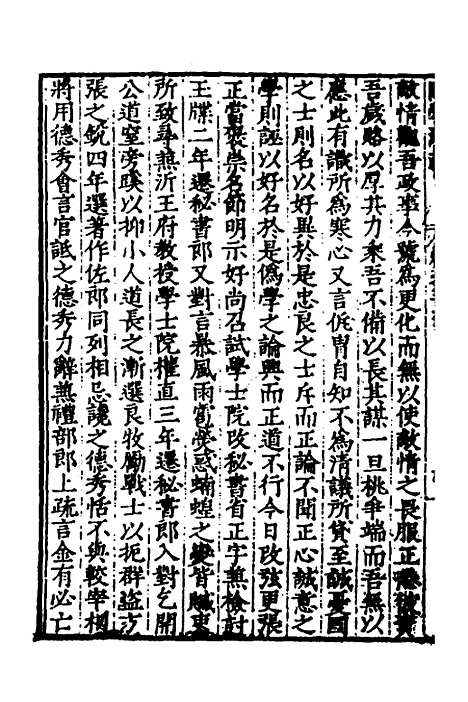 敵情觀吾政事今號為更化而無以使敵情之畏服正恐彼貲
吾歲賂以厚其力乘吾不備以長其謀一旦挑爭端而吾無以
應此有識所為寒心又言侂胄自知不為清議所貸至誠憂國
之士則名以好異於是忠良之士斥而正論不聞正心誠意之
學則誣以好名於是偽學之論興而正道不行今日改弦更張
正當褒崇名節明示好尚召試學士院改秘書省正字兼檢討
玉牒二年遷秘書郎又對言暴風雨雹熒惑蝻蝗之變皆贓吏
所致尋兼沂王府教授學士院權直三年遷秘書郎入對乞開
公道窒旁蹊以抑小人道長之漸選良牧勵戰士以扼群盜方
張之銳四年選著作佐郎同列相忌讒之德秀恬不與較宰相
將用德秀會言官詆之德秀力辭兼禮部郎上疏言金有必亡